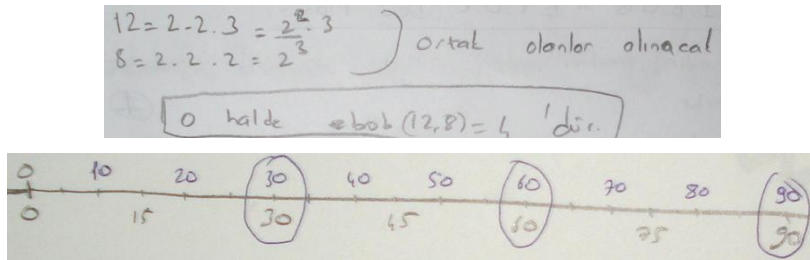 12 = 2.2.3 = 2².3
8 = 2.2.2 = 2³
ortak olanlar alınacak
O halde ebob(12,8) = 4 'dür.
0 10 20 30 40 50 60 70 80 90
0 15 30 45 60 75 90